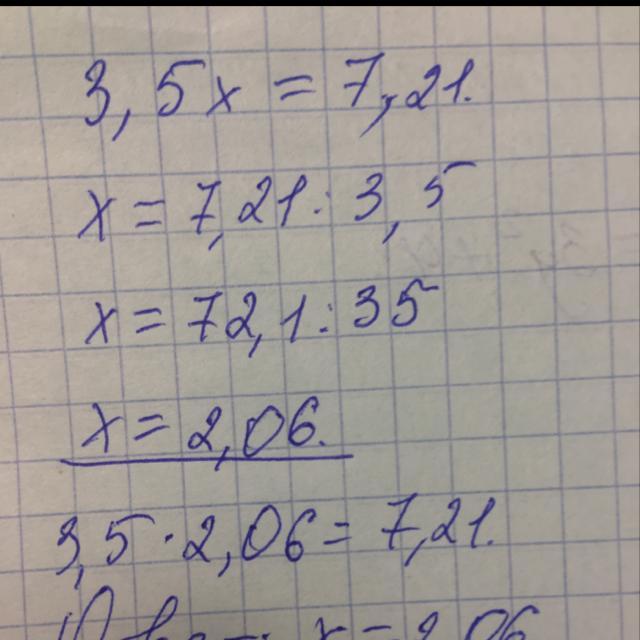 3,5x = 7,21.
x = 7,21 : 3,5
x = 72,1 : 35
x = 2,06.
3,5 · 2,06 = 7,21.
x = 2,06